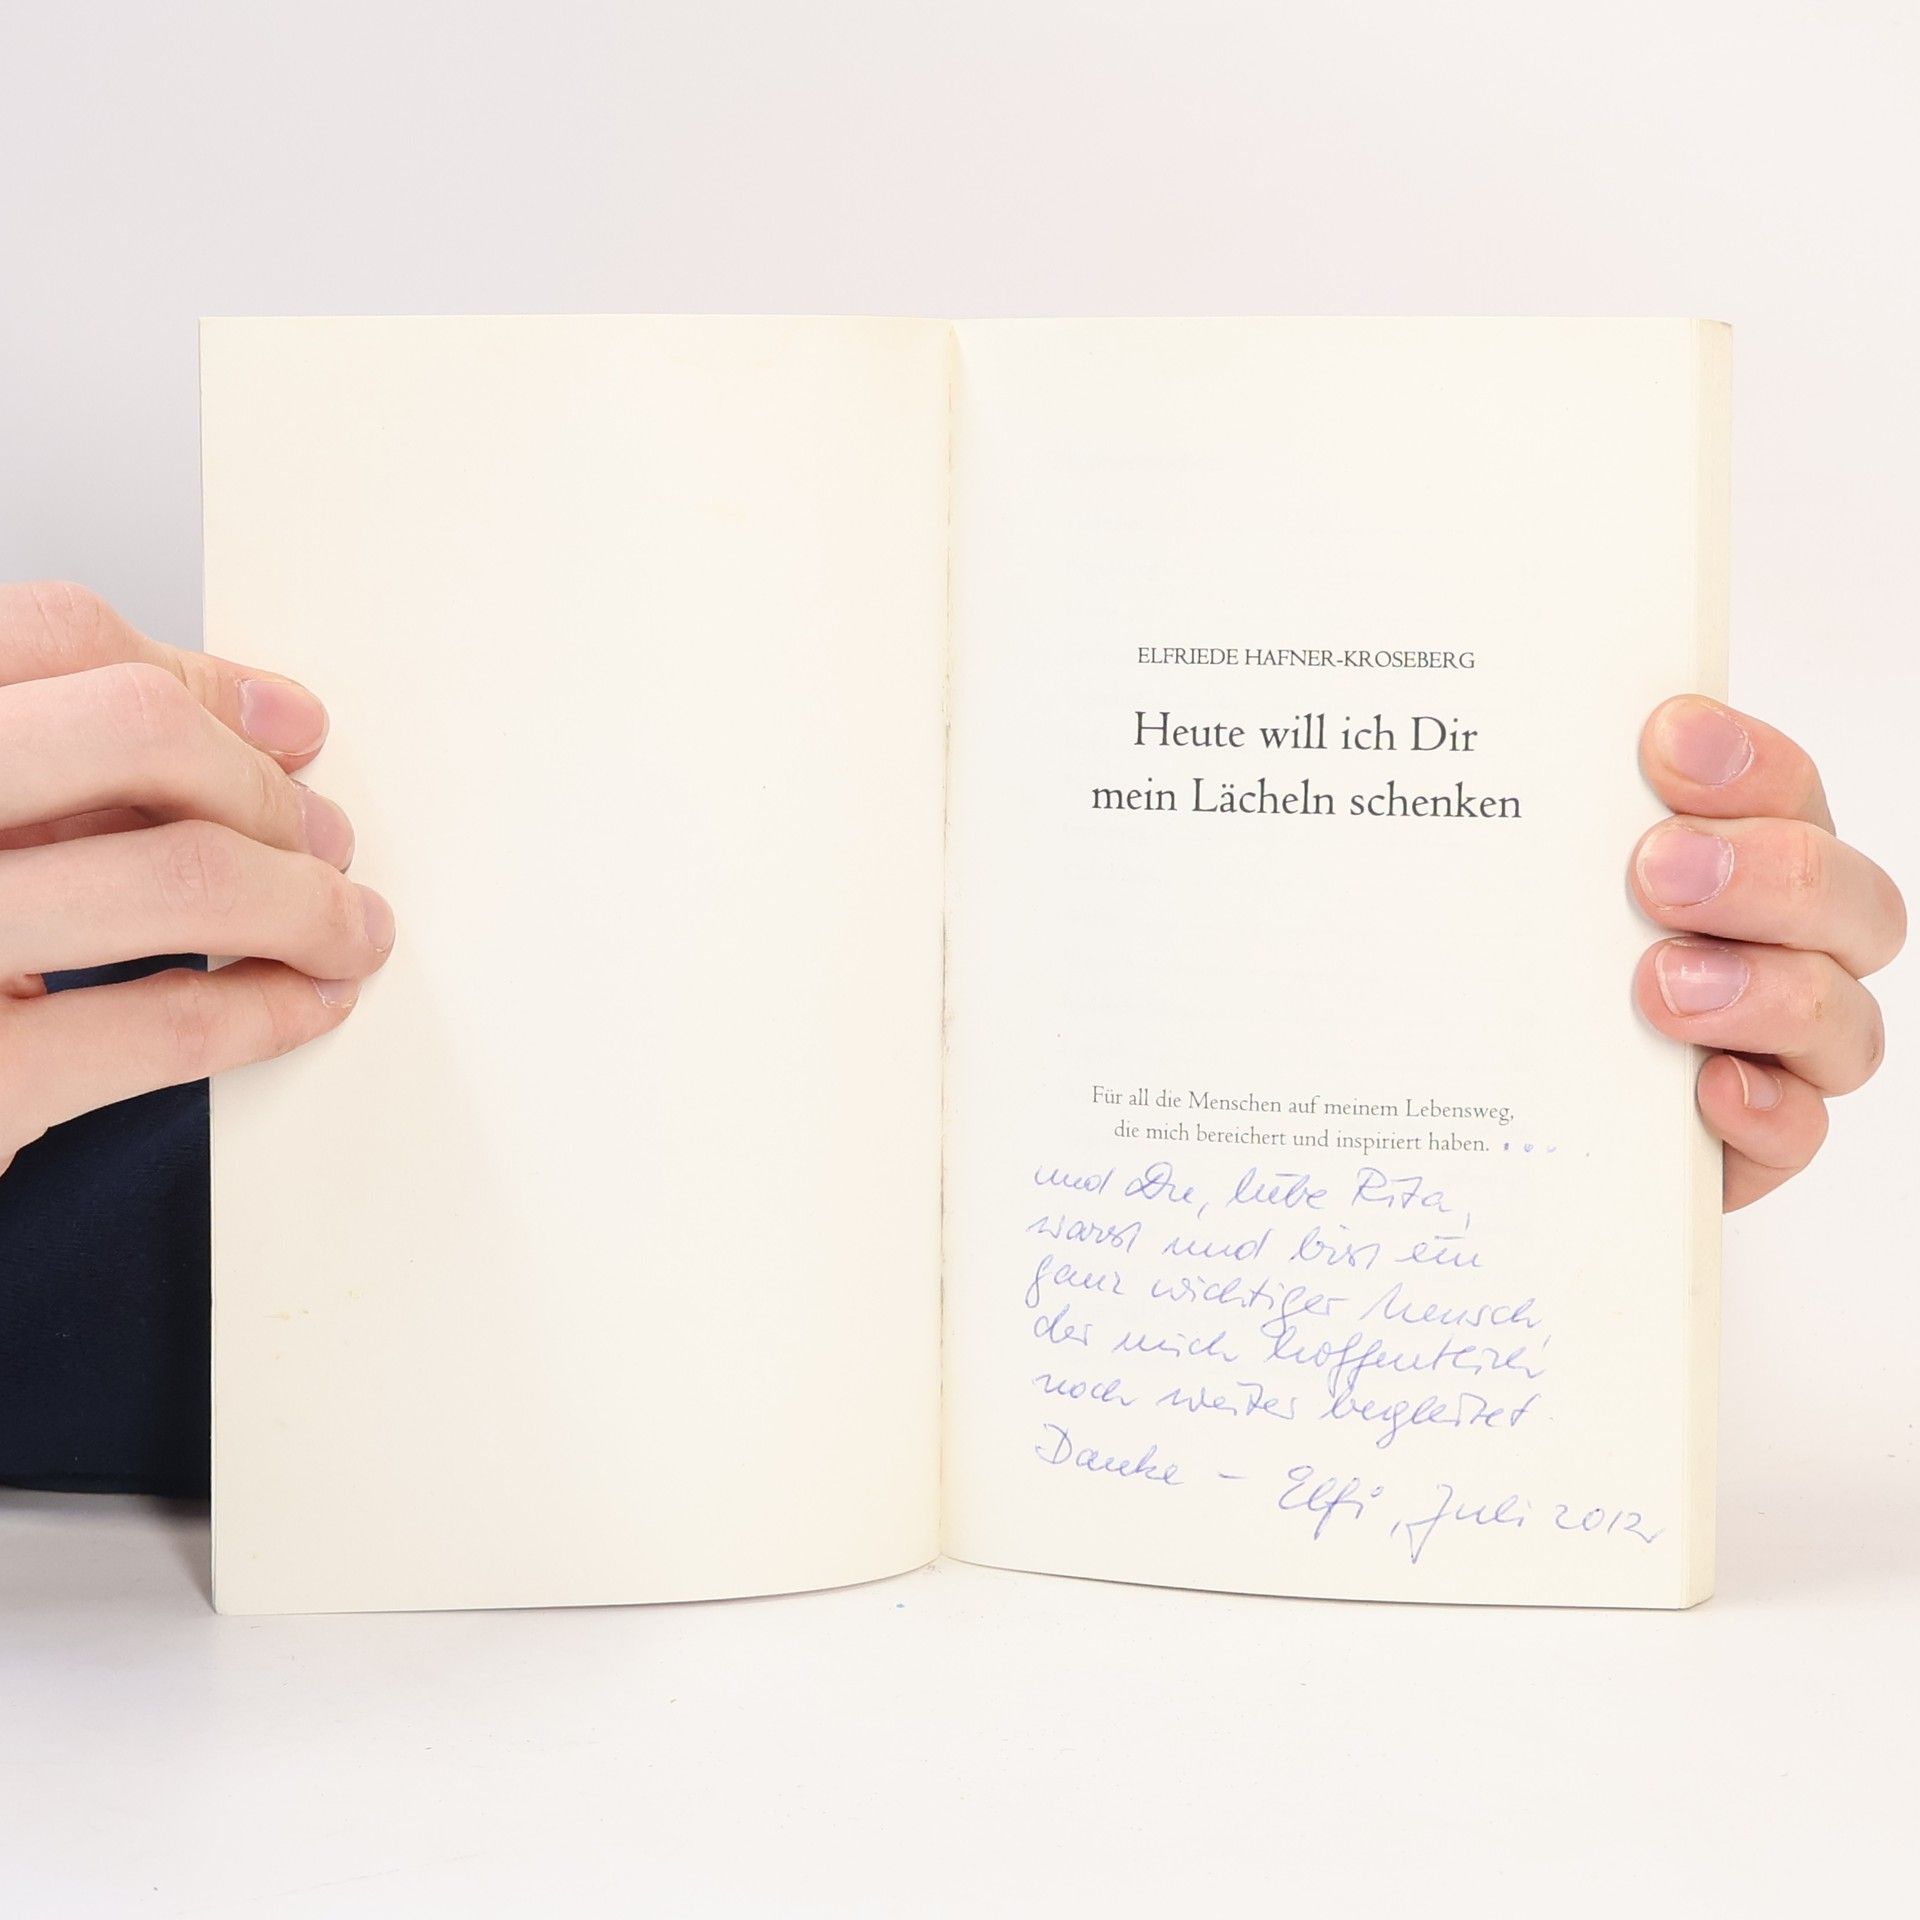 ELFRIEDE HAFNER-KROSEBERG
Heute will ich Dir
mein Lächeln schenken
Für all die Menschen auf meinem Lebensweg,
die mich bereichert und inspiriert haben. . . .
und Du, liebe Rita,
warst und bist ein
ganz wichtiger Mensch,
der mich hoffentlich
noch weiter begleitet
Danke – Elfi, Juli 2012